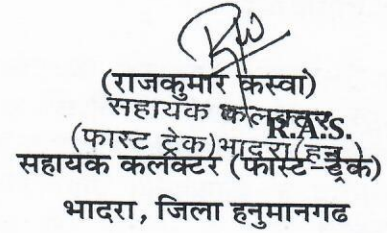 (राजकुमार कस्वा)
सहायक कलक्टर
R.A.S.
(फास्ट ट्रेक) भादरा (हनु.)
सहायक कलक्टर (फास्ट-ट्रेक)
भादरा, जिला हनुमानगढ